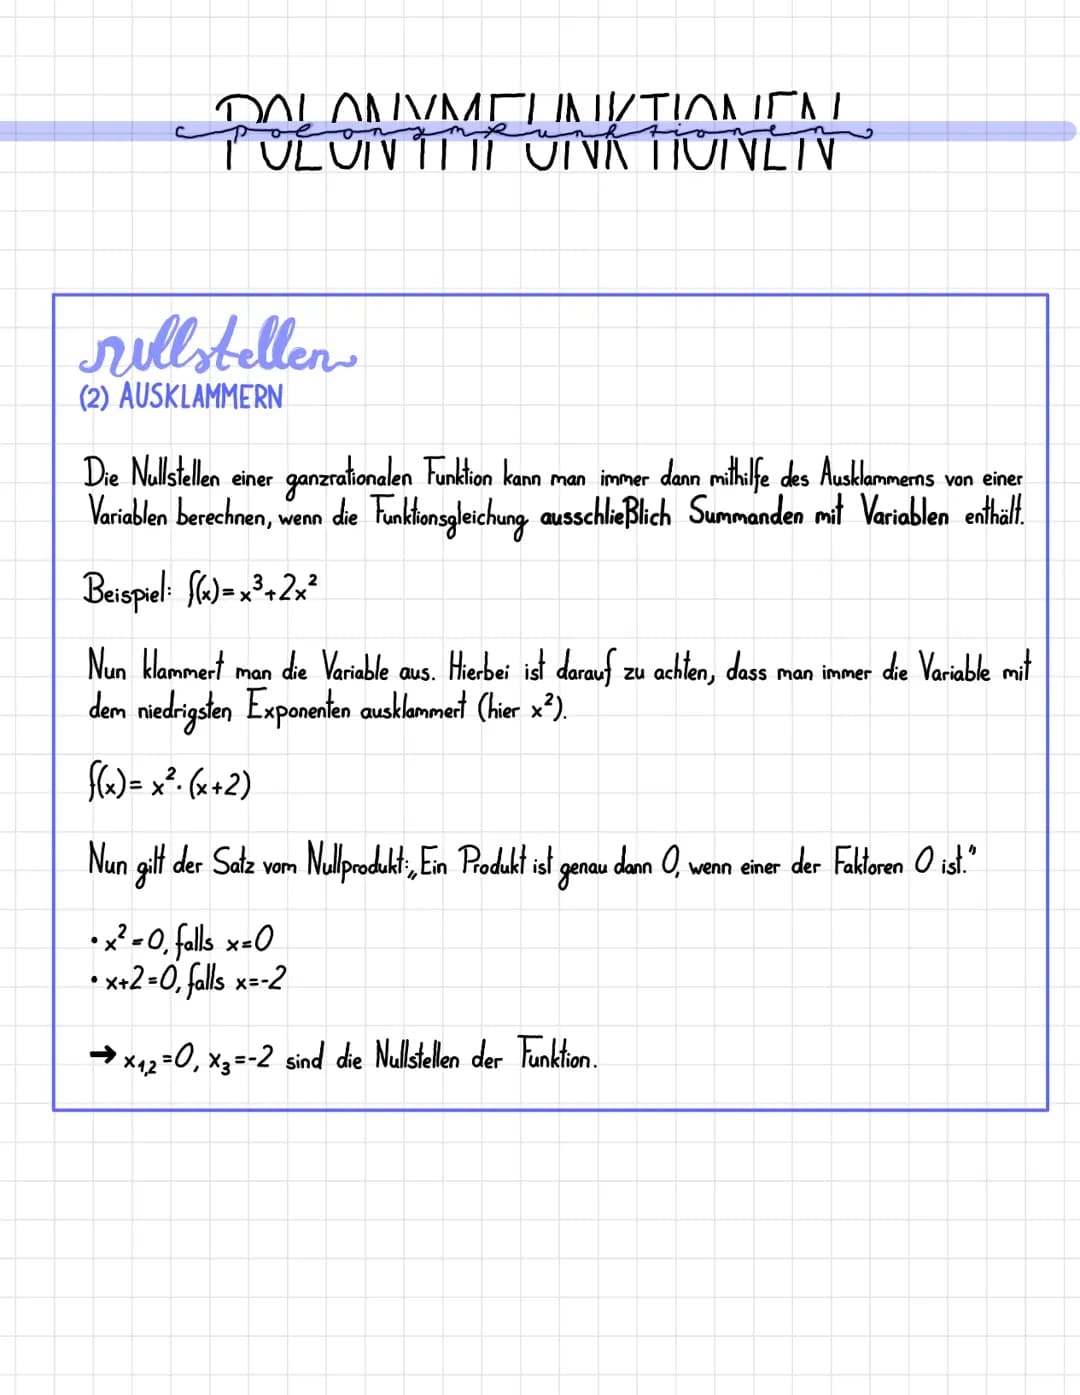 POLONYMFUNKTIONEN
polonymfunktionen
nullstellen
(2) AUSKLAMMERN
Die Nullstellen einer ganzrationalen Funktion kann man immer dann mithilfe des Ausklammerns von einer
Variablen berechnen, wenn die Funktionsgleichung ausschließlich Summanden mit Variablen enthält.
Beispiel: f(x)=x³+2x²
Nun klammert man die Variable aus. Hierbei ist darauf zu achten, dass man immer die Variable mit
dem niedrigsten Exponenten ausklammert (hier x²).
f(x)= x²·(x+2)
Nun gilt der Satz vom Nullprodukt: „Ein Produkt ist genau dann 0, wenn einer der Faktoren 0 ist."
• x²=0, falls x=0
• x+2=0, falls x=-2
→ x₁,₂=0, x₃=-2 sind die Nullstellen der Funktion.